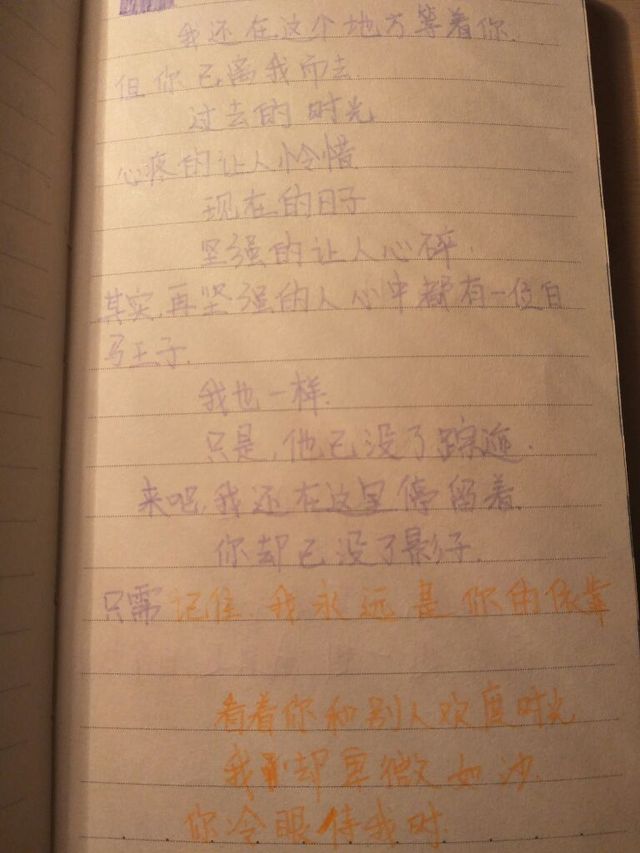 我还在这个地方等着你.
但你已离我而去
过去的时光
心疼的让人怜惜
现在的日子
坚强的让人心碎.
其实,再坚强的人心中都有一位白
马王子.
我也一样.
只是,他已没了踪迹.
来吧,我还在这里停留着.
你却已没了影子.
只需记住,我永远是你的依靠
看着你和别人欢度时光
我却卑微如沙.
你冷眼待我时.